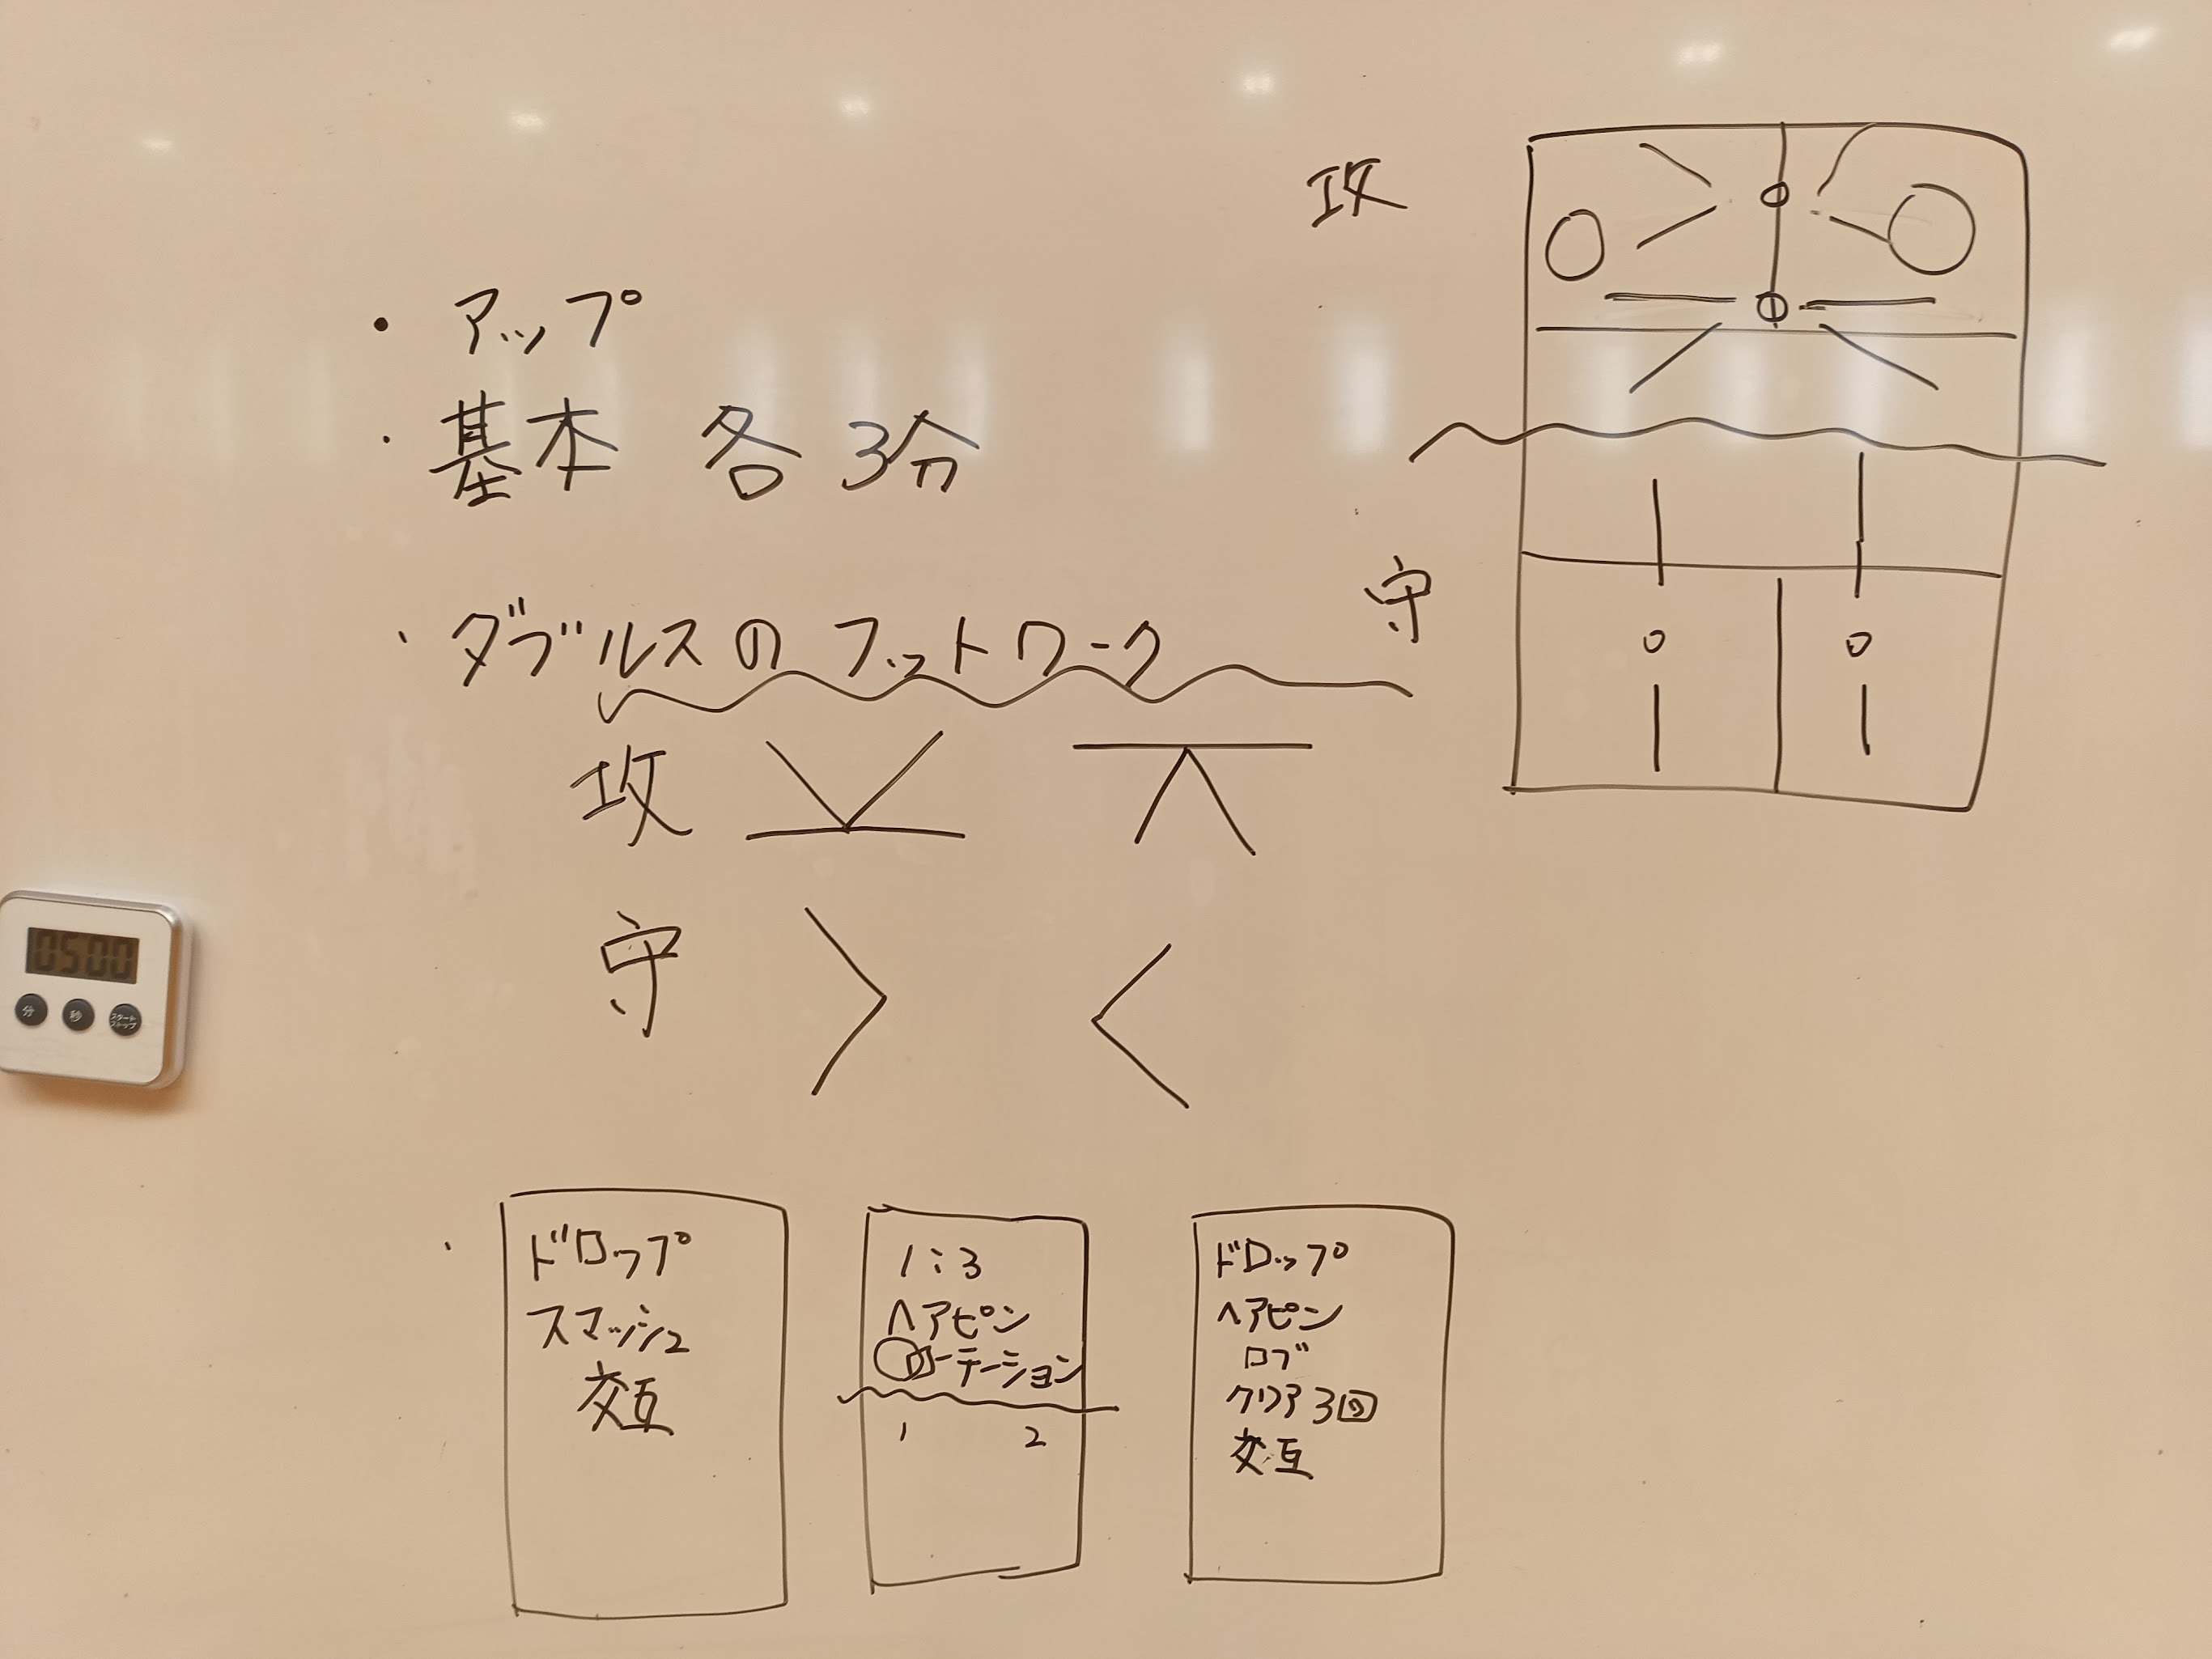 ・アップ
・基本 各3分
・ダブルスのフットワーク
攻
守
攻
守
・
ドロップ
スマッシュ
交互
1:3
ヘアピン
ローテーション
1 2
ドロップ
ヘアピン
ロブ
クリア3回
交互
0500
分 秒 スタート
ストップ